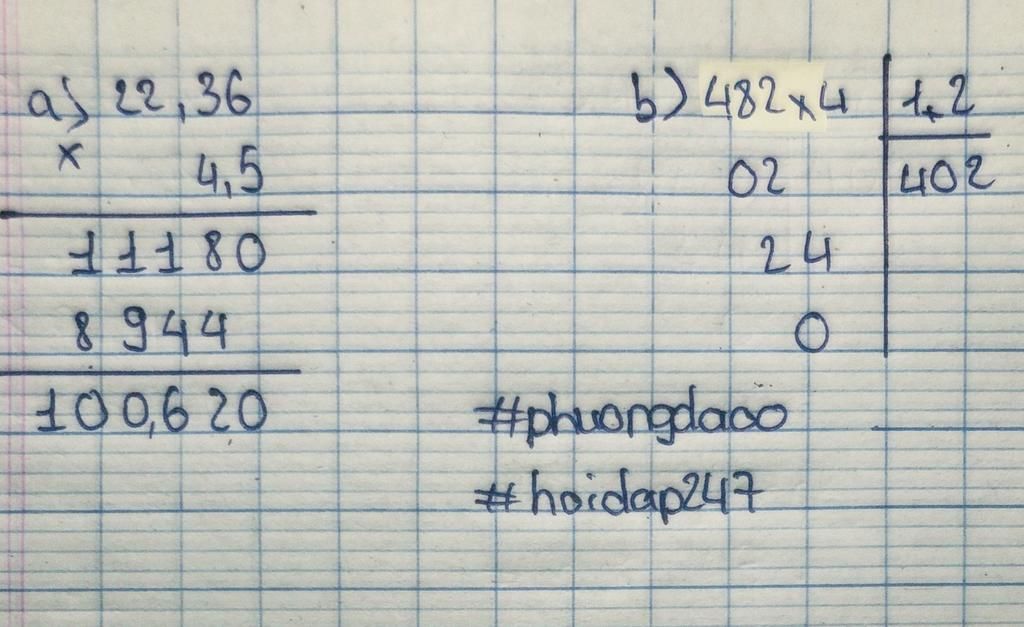 a) 22,36
x 4,5
11180
8944
100,620
b) 482x4 1,2
02 402
24
0
#phuongdaoo
#hoidap247